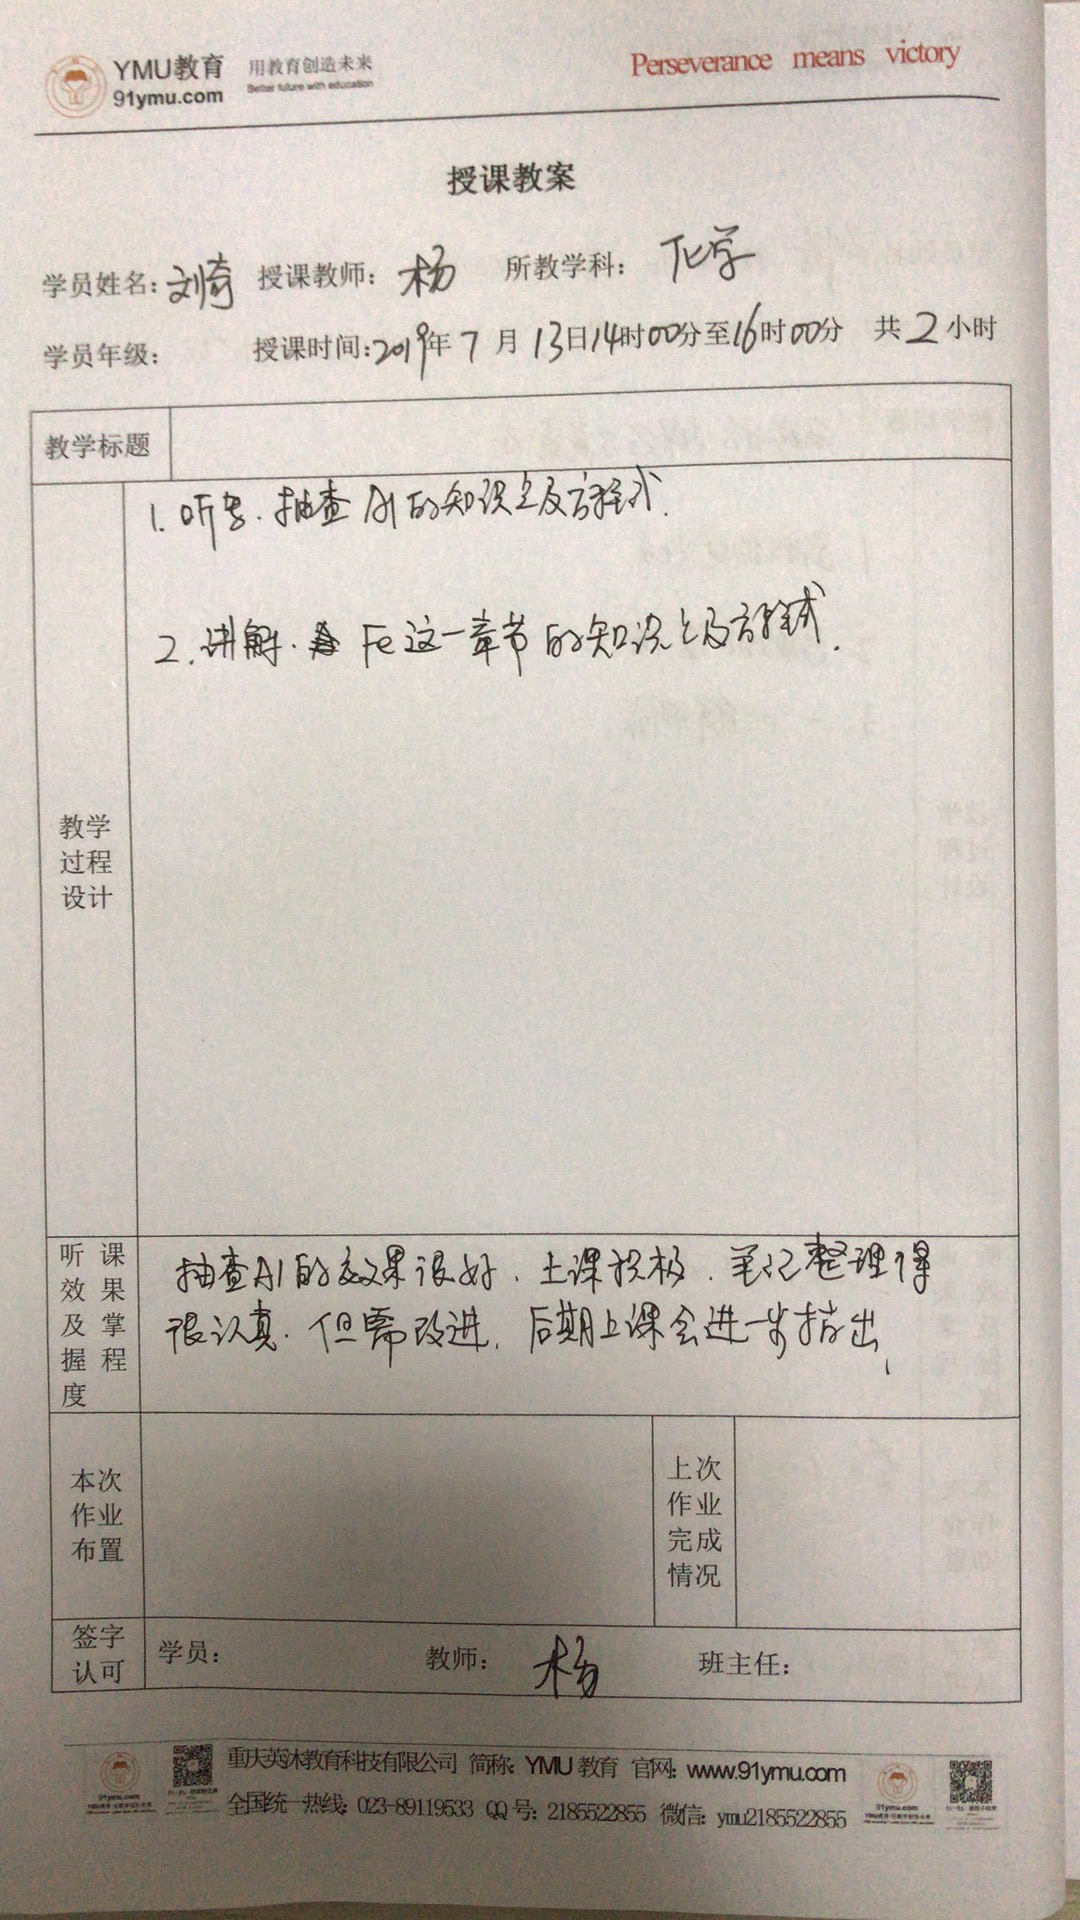 YMU教育 用教育创造未来 Perseverance means victory
91ymu.com Better future with education
授课教案
学员姓名：刘奇 授课教师：杨 所教学科：化学
学员年级： 授课时间：2019年7月13日14时00分至16时00分 共2小时
教学标题
1.听写.抽查Al的知识点及方程式.
2.讲解. Fe这一章节的知识点及方程式.
教学
过程
设计
听课
效果
及掌
握程
度
抽查Al的效果很好.上课积极.笔记整理得
很认真.但需改进.后期上课会进一步指出.
本次
作业
布置
上次
作业
完成
情况
签字
认可
学员： 教师：杨 班主任：
重庆英沐教育科技有限公司 简称：YMU教育 官网：www.91ymu.com
全国统一热线：023-89119533 QQ号：2185522855 微信：ymu2185522855
91ymu.com
91ymu.com